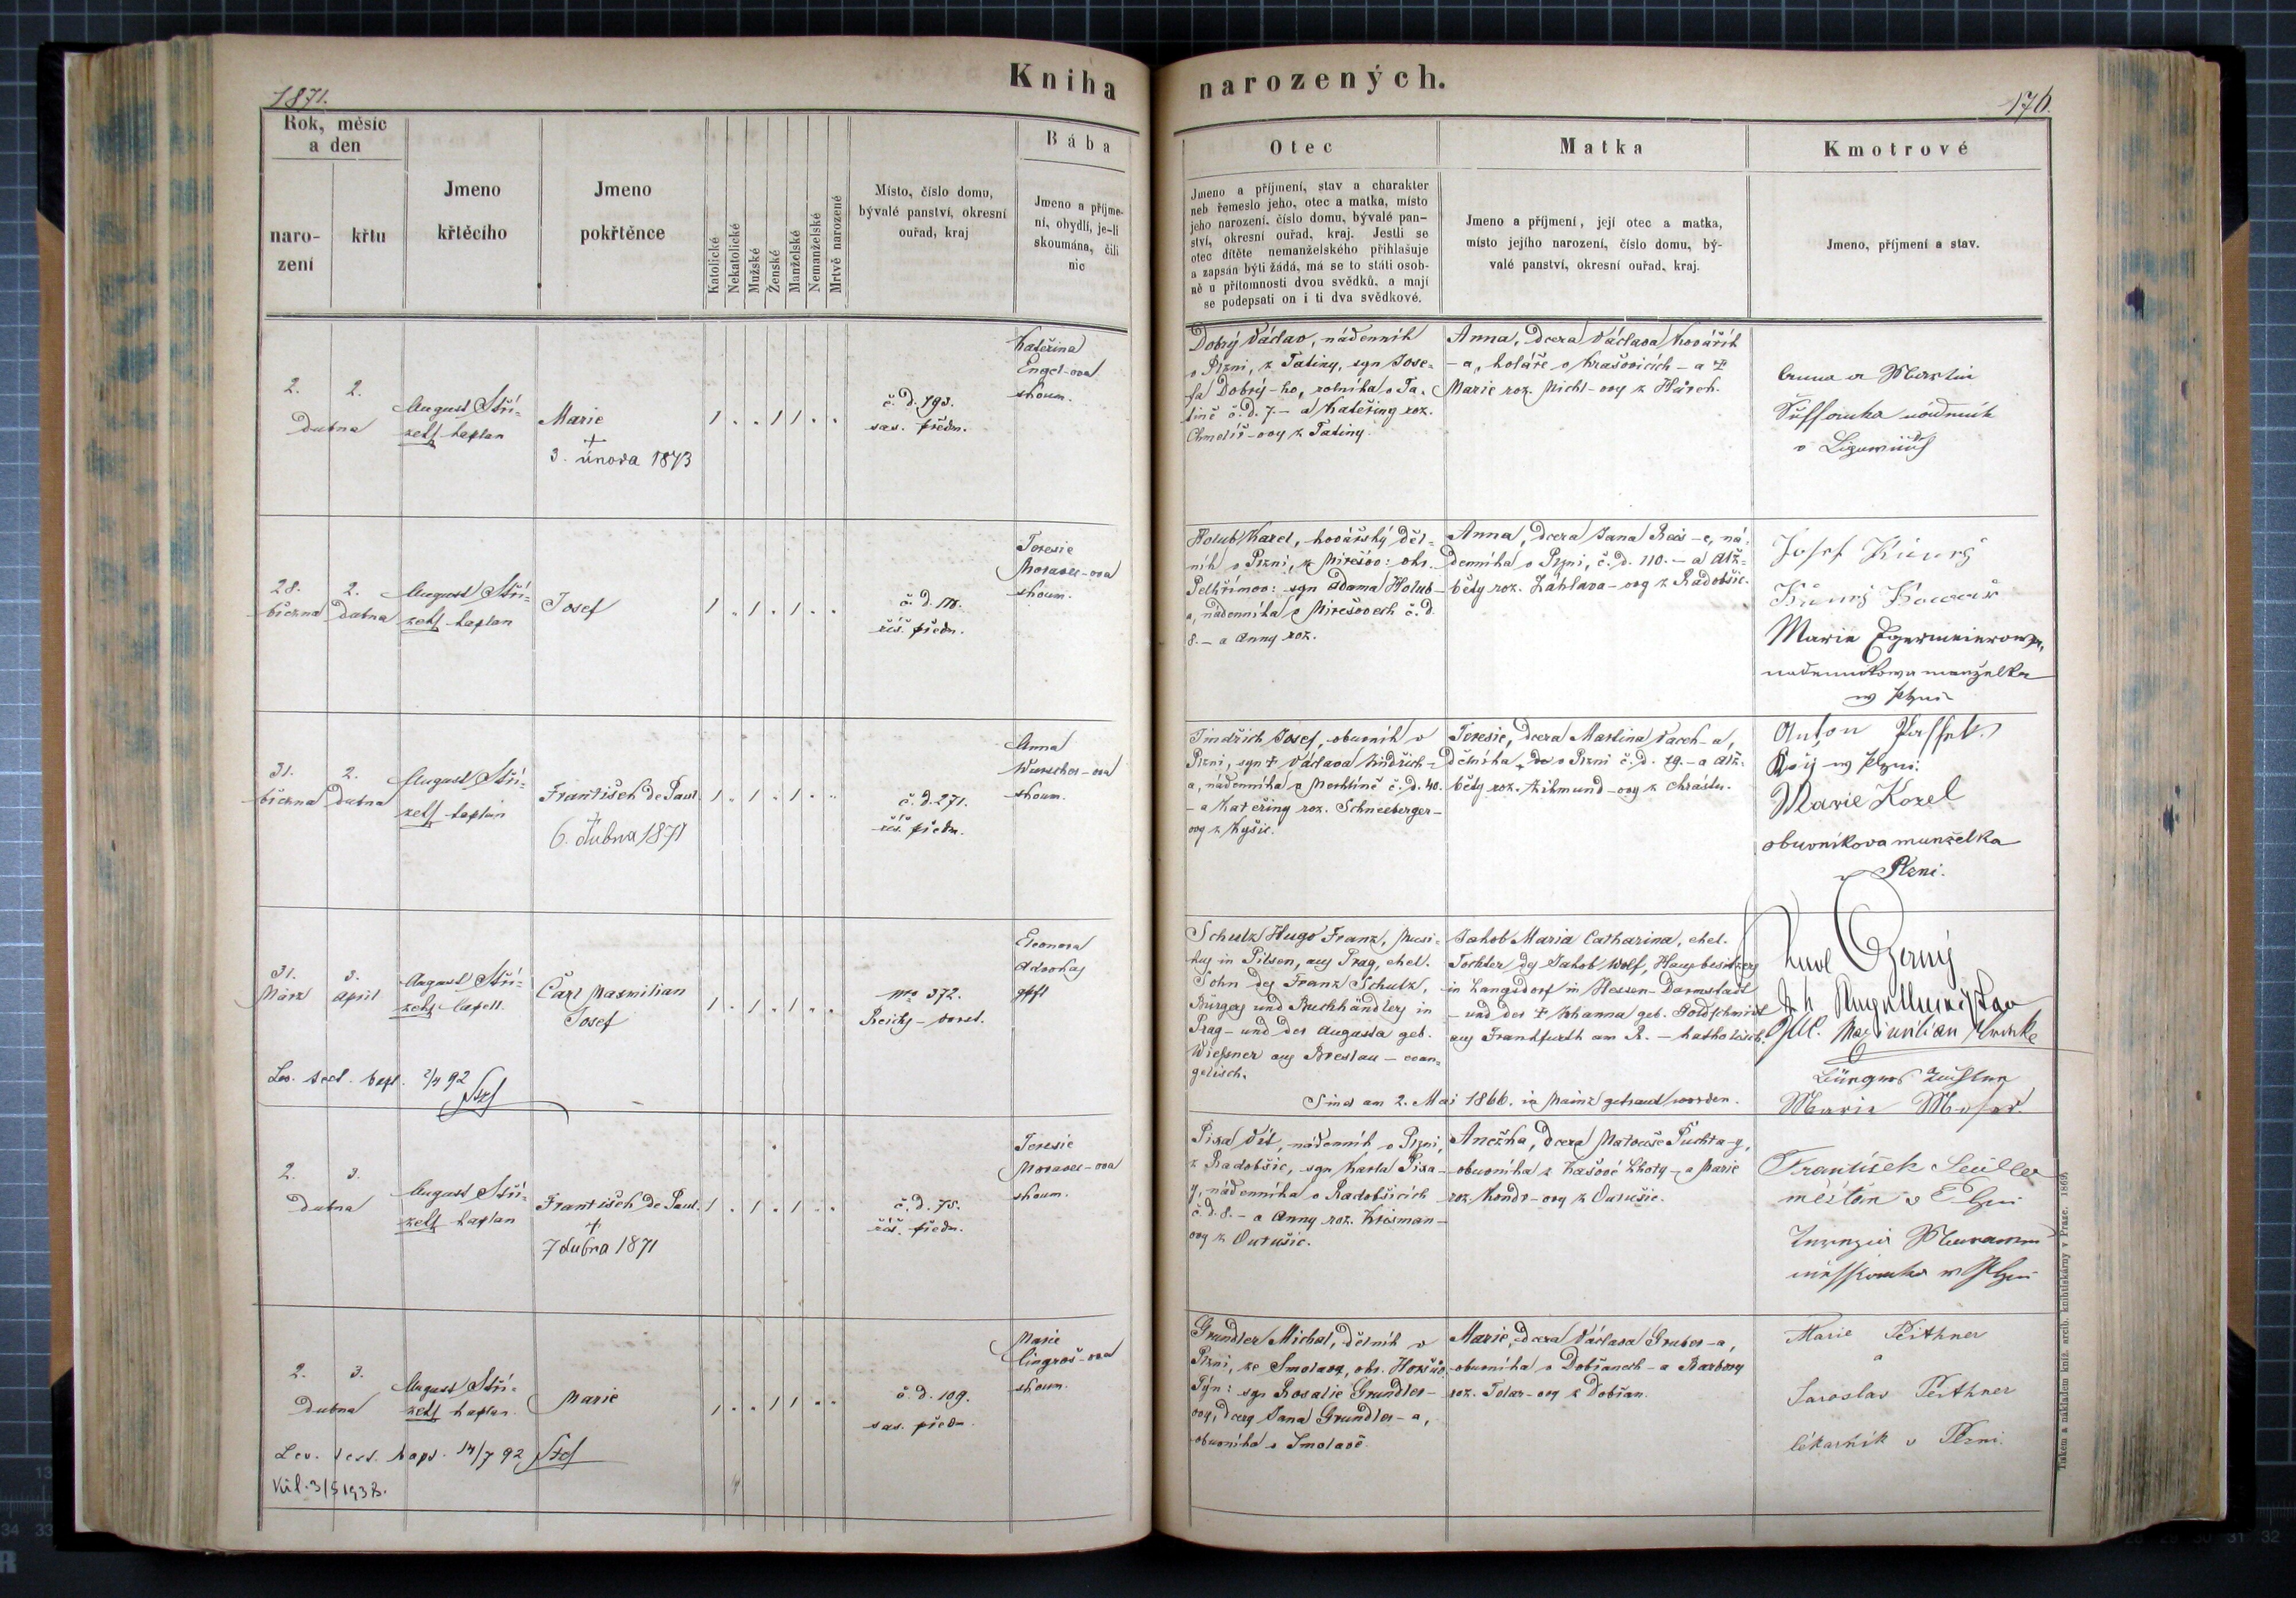 1871.
Kniha
narozených.
176.
Rok, měsíc
a den
naro-
zení
křtu
Jmeno
křtěcího
Jmeno
pokřtěnce
Katolické
Nekatolické
Mužské
Ženské
Manželské
Nemanželské
Mrtvě narozené
Místo, číslo domu,
bývalé panství, okresní
ouřad, kraj
Bába
Jmeno a příjme-
ní, obydlí, je-li
skoumána, čili
nic
Otec
Jmeno a příjmení, stav a charakter
neb řemeslo jeho, otec a matka, místo
jeho narození, číslo domu, bývalé pan-
ství, okresní ouřad, kraj. Jestli se
otec dítěte nemanželského přihlašuje
a zapsán býti žádá, má se to státi osob-
ně u přítomnosti dvou svědků, a mají
se podepsati on i ti dva svědkové.
Matka
Jmeno a příjmení, její otec a matka,
místo jejího narození, číslo domu, bý-
valé panství, okresní ouřad, kraj.
Kmotrové
Jmeno, příjmení a stav.
2. 2.
Dubna
August Stří-
zek kaplan
Marie
+
3. února 1873
1 . . 1 1 . .
č. d. 793.
sas. předm.
Kateřina
Engel-ova
skoum.
Dobrý Václav, nádenník
v Plzni, z Tatiny, syn Jose-
fa Dobrý-ho, rolníka v Ta-
tině č. d. 7. – a Kateřiny roz.
Chmelíř-ovy z Tatiny.
Anna, dcera Václava Kovářík
-a, koláře v Krašovicích – a +
Marie roz. Michl-ovy z
Anna a Martin
28. 2.
března dubna
August Stří-
zek kaplan
Josef
1 . 1 . 1 . .
č. d.
říš. předm.
Teresie
Moravec-ova
skoum.
Holub Karel, kovářský děl-
ník v Plzni, z Mirešov: okr.
Pelhřimov: syn Adama Holub-
a, nádenníka v Mirešovech č. d.
8. – a Anny roz.
Anna, dcera Jana Reis-e, ná-
denníka v Plzni, č. d. 110. – a Alž-
běty roz. Záhlava-ovy z Radobšic.
Josef
Marie
manželka
w Plzni
31. 2.
března dubna
August Stří-
zek kaplan
František de Paul.
+
6. dubna 1871
1 . 1 . 1 . .
č. d. 271.
říš. předm.
Anna
skoum.
Jindřich Josef, obuvník v
Plzni, syn + Václava Jindřich-
a, nádenníka v Mochtíně č. d. 40.
– a Kateřiny roz. Schneeberger-
ovy z Kyšic.
Teresie, dcera Martina Vacek-a,
dělníka v Plzni č. d. 79. – a Alž-
běty roz. Zikmund-ovy z Chrástu.
Anton
w Plzni.
Marie Kozel
obuvníkova manželka
v Plzni.
31. 3.
März April
August Stří-
zek Capell.
Carl Maxmilian
Josef
1 . 1 . 1 . .
No 372.
Reichs-vorst.
Eleonora
Advokaj
gpft
Schulz Hugo Franz, Musi-
kus in Pilsen, aus Prag, ehel.
Sohn des Franz Schulz,
Bürgers und Buchhändlers in
Prag – und der Augusta geb.
Wießner aus Breslau – evan-
gelisch.
Jakob Maria Catharina, ehel.
Tochter des Jakob Wolf, Hausbesitzers
in Langsdorf in Hessen-Darmstadt
– und der + Johanna geb. Goldschmidt
aus Frankfurth am R. – katholisch.
Sind am 2. Mai 1866. in Mainz getraut worden.
Karl Czerny
Maximilian
Marie Moser
Lev. sect. bapt. 2/4 92
2. 3.
dubna
August Stří-
zek kaplan
František de Paul.
+
7 dubna 1871
1 . 1 . 1 . .
č. d. 75.
říš. předm.
Teresie
Moravec-ova
skoum.
Pixa Vít, nádenník v Plzni,
z Radobšic, syn Karla Pixa-
y, nádenníka v Radobšicích
č. d. 8. – a Anny roz. Krisman-
ovy z Outušic.
Anežka, dcera Matouše Puchta-y,
obuvníka z Kašové Lhoty – a Marie
roz. Kondr-ovy z Outušic.
František
měštan v Plzni
w Plzni
2. 3.
Dubna
August Stří-
zek kaplan.
Marie
1 . . 1 1 . .
č. d. 109.
sas. předm.
Marie
Cingroš-ova
skoum.
Grundler Michal, dělník v
Plzni, ze Smolova, okr. Horšův
Týn: syn Rosalie Grundler-
ovy, dcery Jana Grundler-a,
obuvníka v Smolově.
Marie, dcera Václava Gruber-a,
obuvníka v Dobřanech – a Barbory
roz. Tolar-ovy z Dobřan.
Marie Peithner
a
Jaroslav Peithner
lékárník v Plzni.
Lev. sect. bapt. 14/7 92
Vúl. 3/5 1938.
Tiskem a nákladem kníž. arcib. knihtiskárny v Praze. 1869.